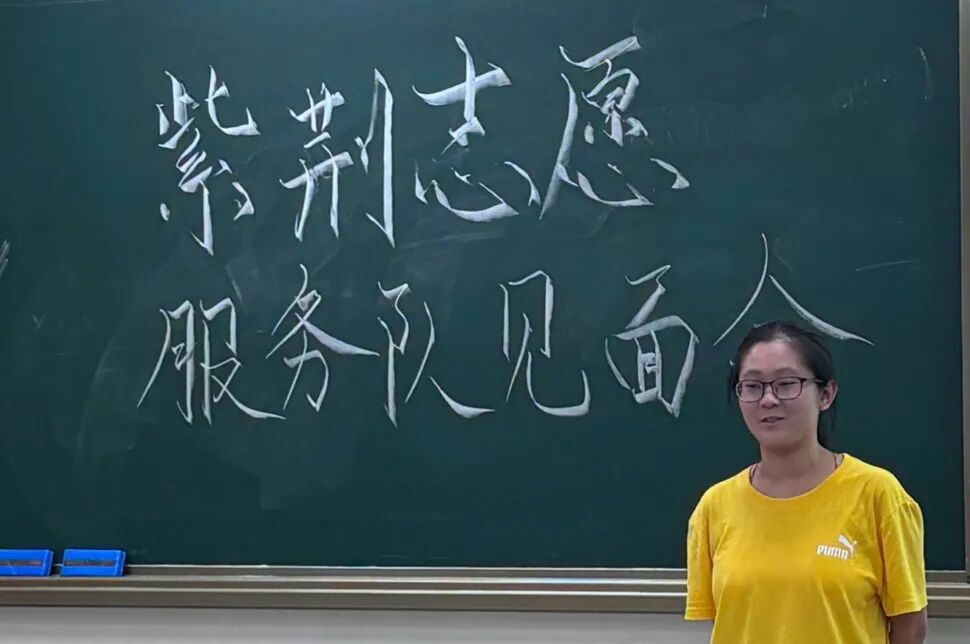 紫荆志愿
服务队见面会
PUMA